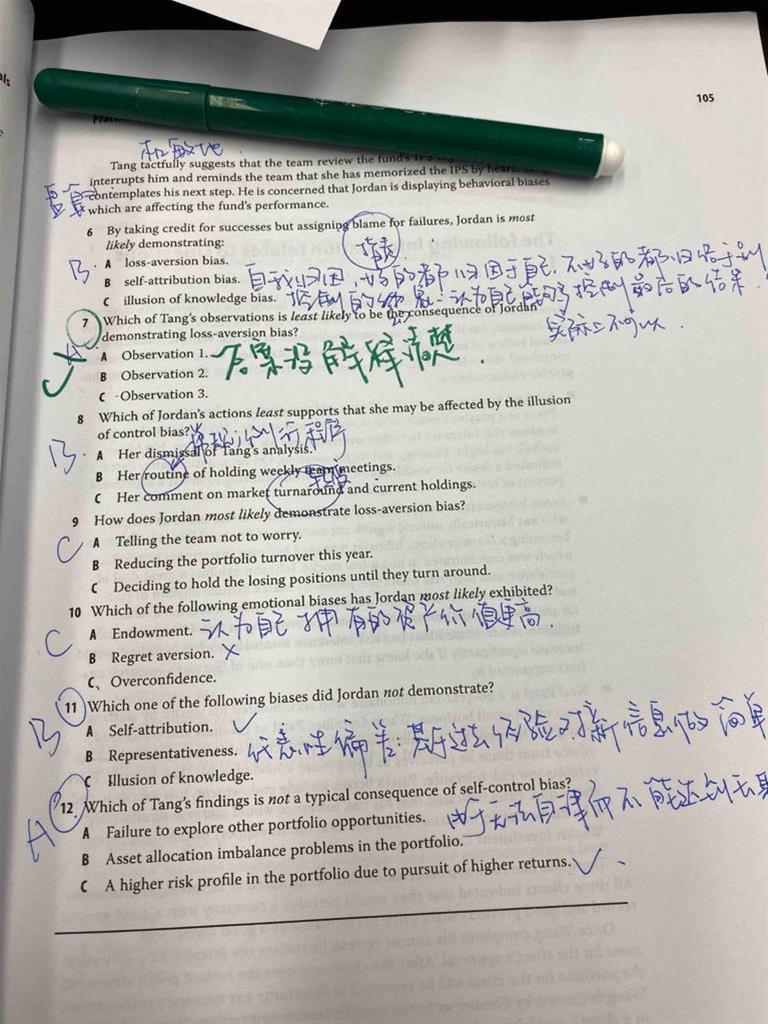 105
和敏地
Tang tactfully suggests that the team review the fund's IPS
interrupts him and reminds the team that she has memorized the IPS by heart.
contemplates his next step. He is concerned that Jordan is displaying behavioral biases
which are affecting the fund's performance.
6 By taking credit for successes but assigning blame for failures, Jordan is most
likely demonstrating:
指责
B.
A loss-aversion bias.
B self-attribution bias. 自我归因,好的都归因于自己.不好的都归给于别
C illusion of knowledge bias. 控制的幻觉:认为自己能够控制最后的结果.
实际上不可以.
7 Which of Tang's observations is least likely to be the consequence of Jordan
demonstrating loss-aversion bias?
A Observation 1. 答案没解释清楚.
B Observation 2.
C Observation 3.
8 Which of Jordan's actions least supports that she may be affected by the illusion
of control bias?
B.
A Her dismissal of Tang's analysis.
B Her routine of holding weekly team meetings.
C Her comment on market turnaround and current holdings.
9 How does Jordan most likely demonstrate loss-aversion bias?
C
A Telling the team not to worry.
B Reducing the portfolio turnover this year.
C Deciding to hold the losing positions until they turn around.
10 Which of the following emotional biases has Jordan most likely exhibited?
C
A Endowment. 认为自己拥有的资产价值更高.
B Regret aversion. ×
C Overconfidence.
11 Which one of the following biases did Jordan not demonstrate?
B
A Self-attribution. ✓
B Representativeness. 代表性偏差:基于过去经验对新信息做简单
C Illusion of knowledge.
12 Which of Tang's findings is not a typical consequence of self-control bias?
A
A Failure to explore other portfolio opportunities. 由于无法自律而不能达到长期
B Asset allocation imbalance problems in the portfolio.
C A higher risk profile in the portfolio due to pursuit of higher returns. ✓